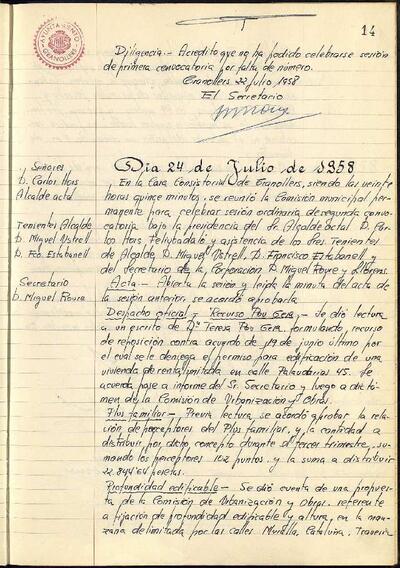 14
AYUNTAMIENTO
GRANOLLERS
Diligencia.- Acredito que no ha podido celebrarse sesión
de primera convocatoria por falta de número.
Granollers 22 julio 1958
El Secretario
Día 24 de Julio de 1958
Señores
D. Carlos Hors
Alcalde actal
Tenientes Alcalde
D. Miguel Ustrell
D. Fco. Estabanell
Secretario
D. Miguel Roura
En la Casa Consistorial de Granollers, siendo las veinte
horas quince minutos, se reunió la Comisión municipal per-
manente para celebrar sesión ordinaria de segunda convo-
catoria bajo la presidencia del Sr. Alcalde actal D. Car-
los Hors y asistencia de los Sres Tenientes
de Alcalde, D. Miguel Ustrell, D. Francisco Estabanell y
del Secretario de la Corporación D. Miguel Roura
Acta.- Abierta la sesión y leída la minuta del acta de
la sesión anterior, se acordó aprobarla
Despacho oficial - Recurso Pou Gera.- Se dió lectura
a un escrito de Dª Teresa Pou Gera, formulando, recurso
de reposición contra acuerdo de 19 de junio último por
el cual se le deniega el permiso para edificación de una
vivienda de renta limitada en calle Palaudarias 45. Se
acuerda pase a informe del Sr. Secretario y luego a dictá-
men de la Comisión de Urbanización y Obras.
Plus familiar.- Previa lectura, se acordó aprobar la rela-
ción de perceptores del Plus familiar, y la cantidad a
distribuir, por dicho concepto durante el tercer trimestre, su-
mando los perceptores 102 puntos, y la suma a distribuir
22.844'64 pesetas.
Profundidad edificable.- Se dió cuenta de una propues-
ta de la Comisión de Urbanización y Obras, referente
a fijación de profundidad edificable y altura, en la man-
zana delimitada por las calles Muralla, Cataluña, Travesía